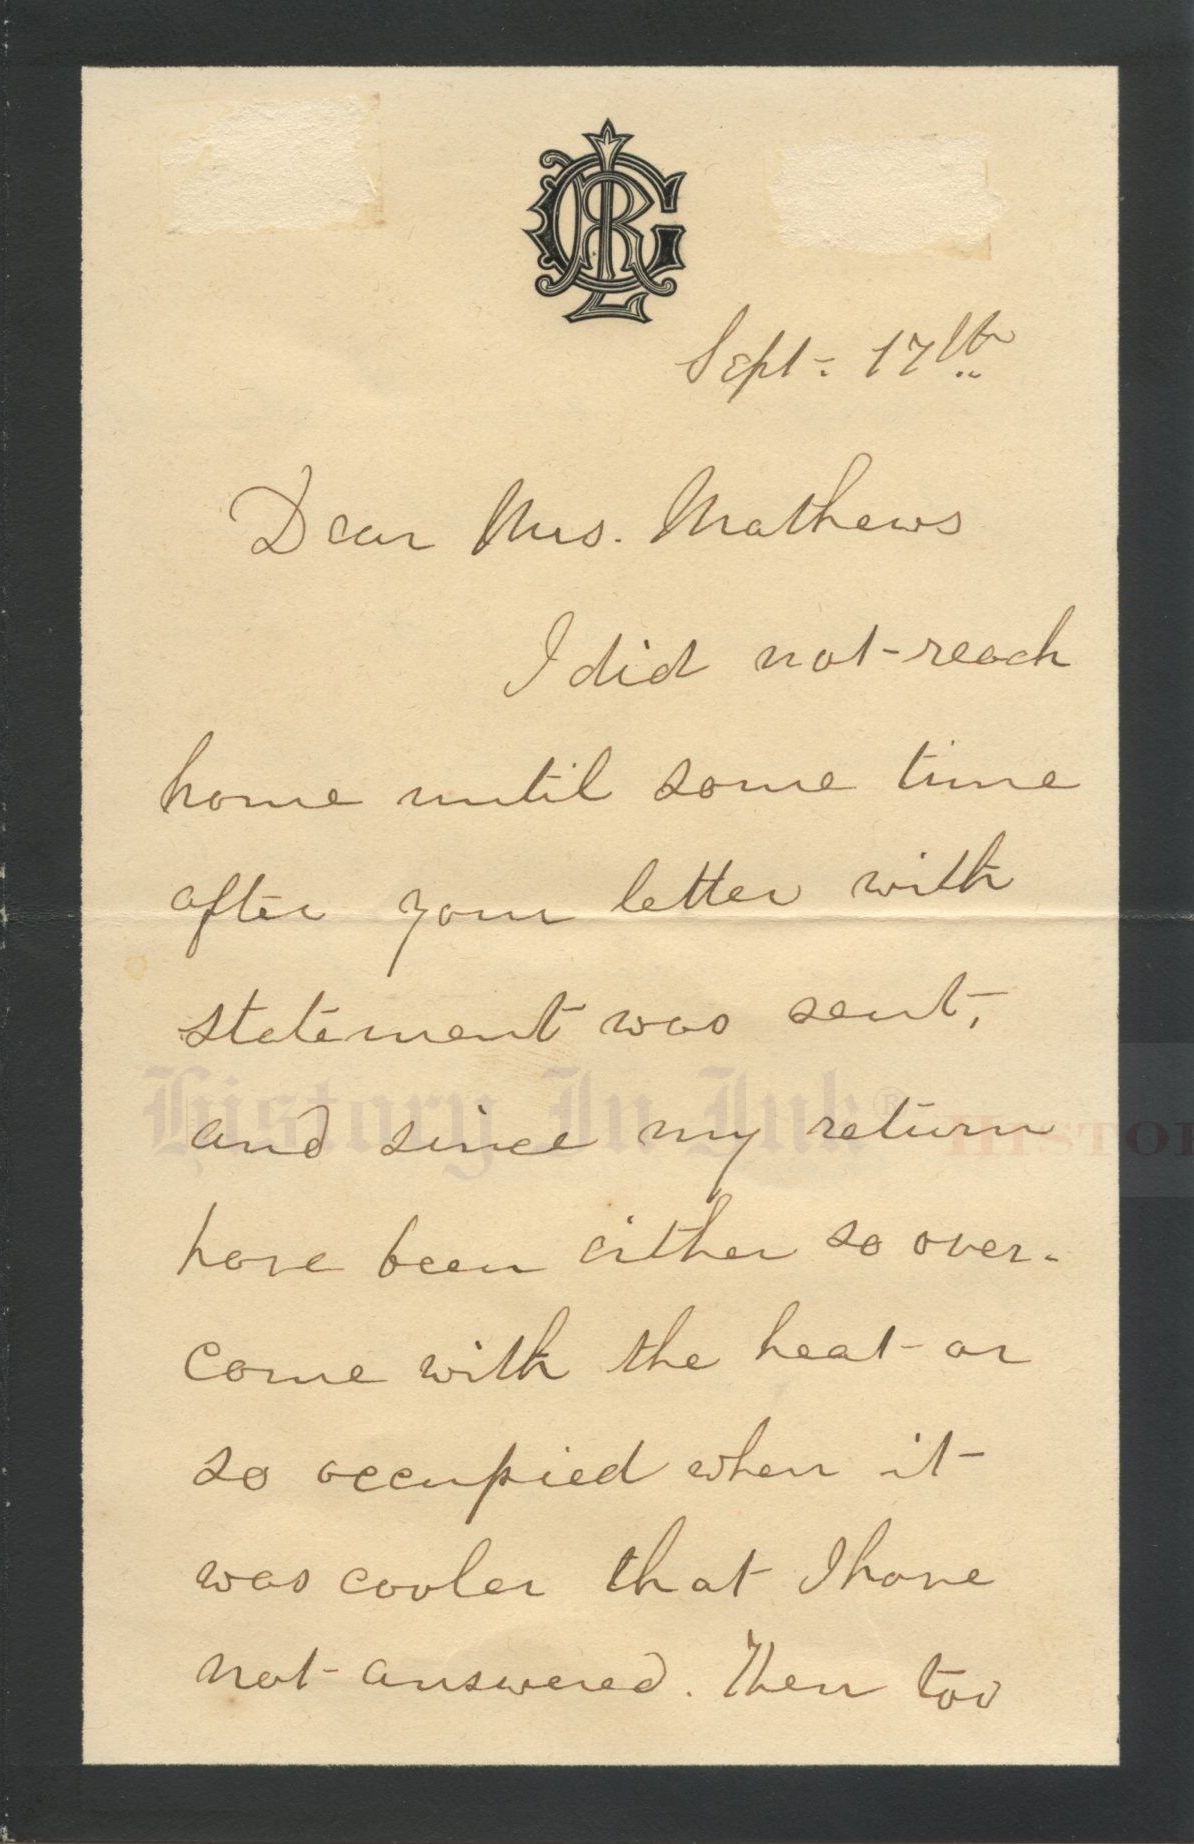 Sept. 17th
Dear Mrs. Mathews
I did not reach
home until some time
after your letter with
statement was sent,
and since my return
have been either so over-
come with the heat or
so occupied when it
was cooler that I have
not answered. Then too
History In Ink®
HISTOR